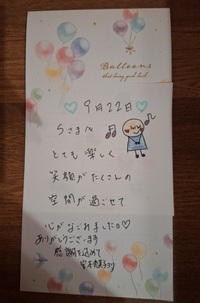 Balloons
that bring good luck
9月22日
Sさまへ
とても楽しく
笑顔がたくさんの
空間が過ごせて
心がなごみました♡
ありがとうございます
感謝を込めて